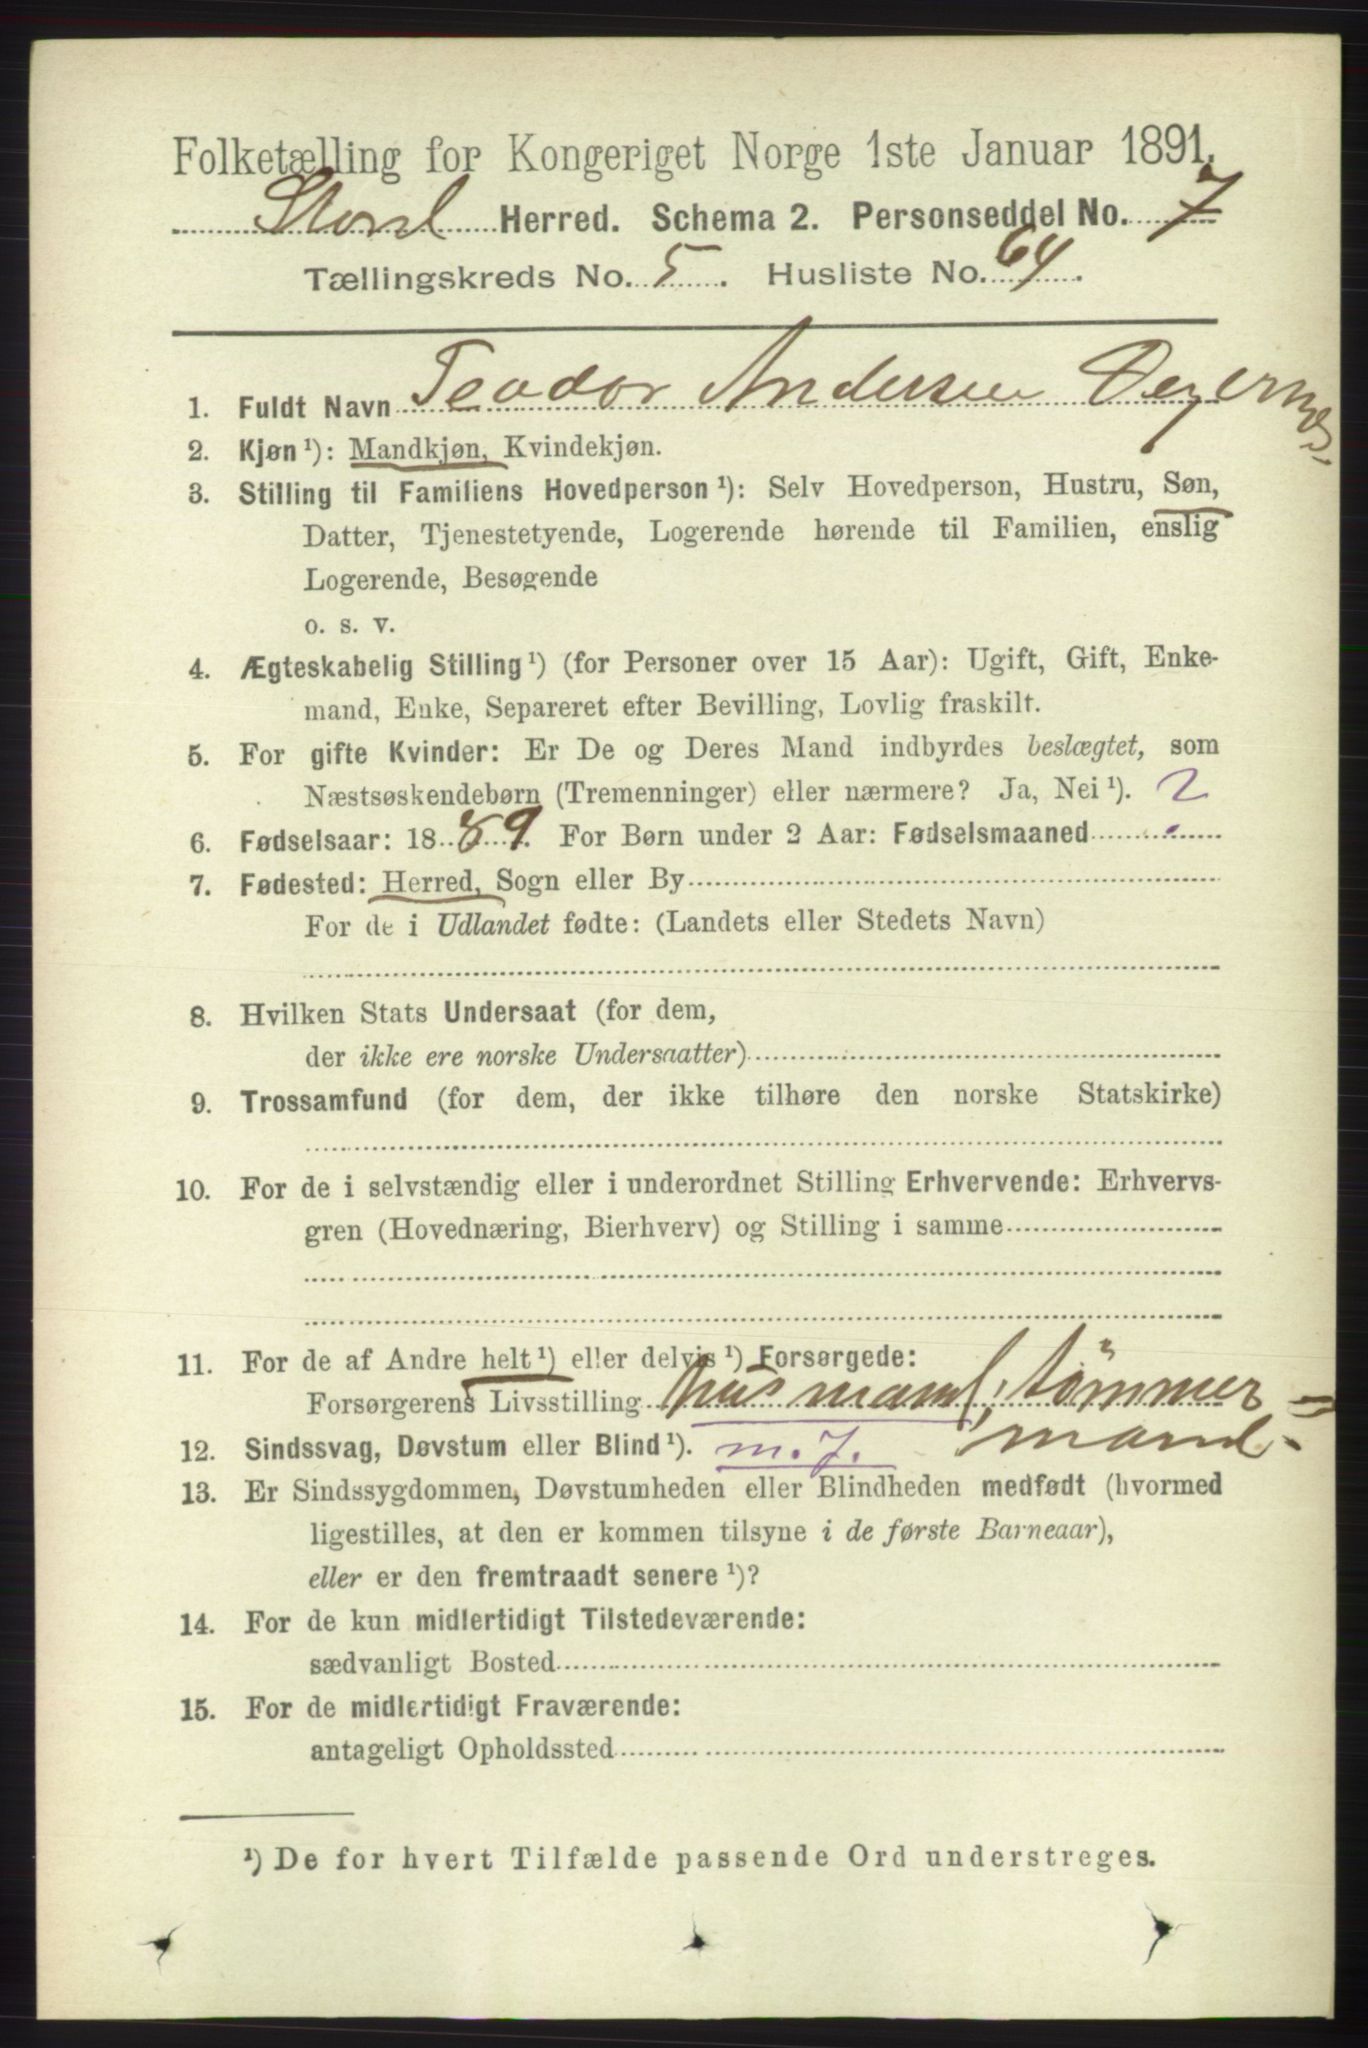 Folketælling for Kongeriget Norge 1ste Januar 1891.
Stord Herred. Schema 2. Personseddel No. 7
Tællingskreds No. 5. Husliste No. 64.
1. Fuldt Navn Teodor Andersen Degernes
2. Kjøn ¹): Mandkjøn, Kvindekjøn.
3. Stilling til Familiens Hovedperson ¹): Selv Hovedperson, Hustru, Søn,
Datter, Tjenestetyende, Logerende hørende til Familien, enslig
Logerende, Besøgende
o. s. v.
4. Ægteskabelig Stilling ¹) (for Personer over 15 Aar): Ugift, Gift, Enke-
mand, Enke, Separeret efter Bevilling, Lovlig fraskilt.
5. For gifte Kvinder: Er De og Deres Mand indbyrdes beslægtet, som
Næstsøskendebørn (Tremenninger) eller nærmere? Ja, Nei ¹). 2
6. Fødselsaar: 1889. For Børn under 2 Aar: Fødselsmaaned
7. Fødested: Herred, Sogn eller By
For de i Udlandet fødte: (Landets eller Stedets Navn)
8. Hvilken Stats Undersaat (for dem,
der ikke ere norske Undersaatter)
9. Trossamfund (for dem, der ikke tilhøre den norske Statskirke)
10. For de i selvstændig eller i underordnet Stilling Erhvervende: Erhvervs-
gren (Hovednæring, Bierhverv) og Stilling i samme
11. For de af Andre helt ¹) eller delvis ¹) Forsørgede:
Forsørgerens Livsstilling husmand, tömmer=
12. Sindssvag, Døvstum eller Blind ¹). m. J. mand.
13. Er Sindssygdommen, Døvstumheden eller Blindheden medfødt (hvormed
ligestilles, at den er kommen tilsyne i de første Barneaar),
eller er den fremtraadt senere ¹)?
14. For de kun midlertidigt Tilstedeværende:
sædvanligt Bosted
15. For de midlertidigt Fraværende:
antageligt Opholdssted
¹) De for hvert Tilfælde passende Ord understreges.